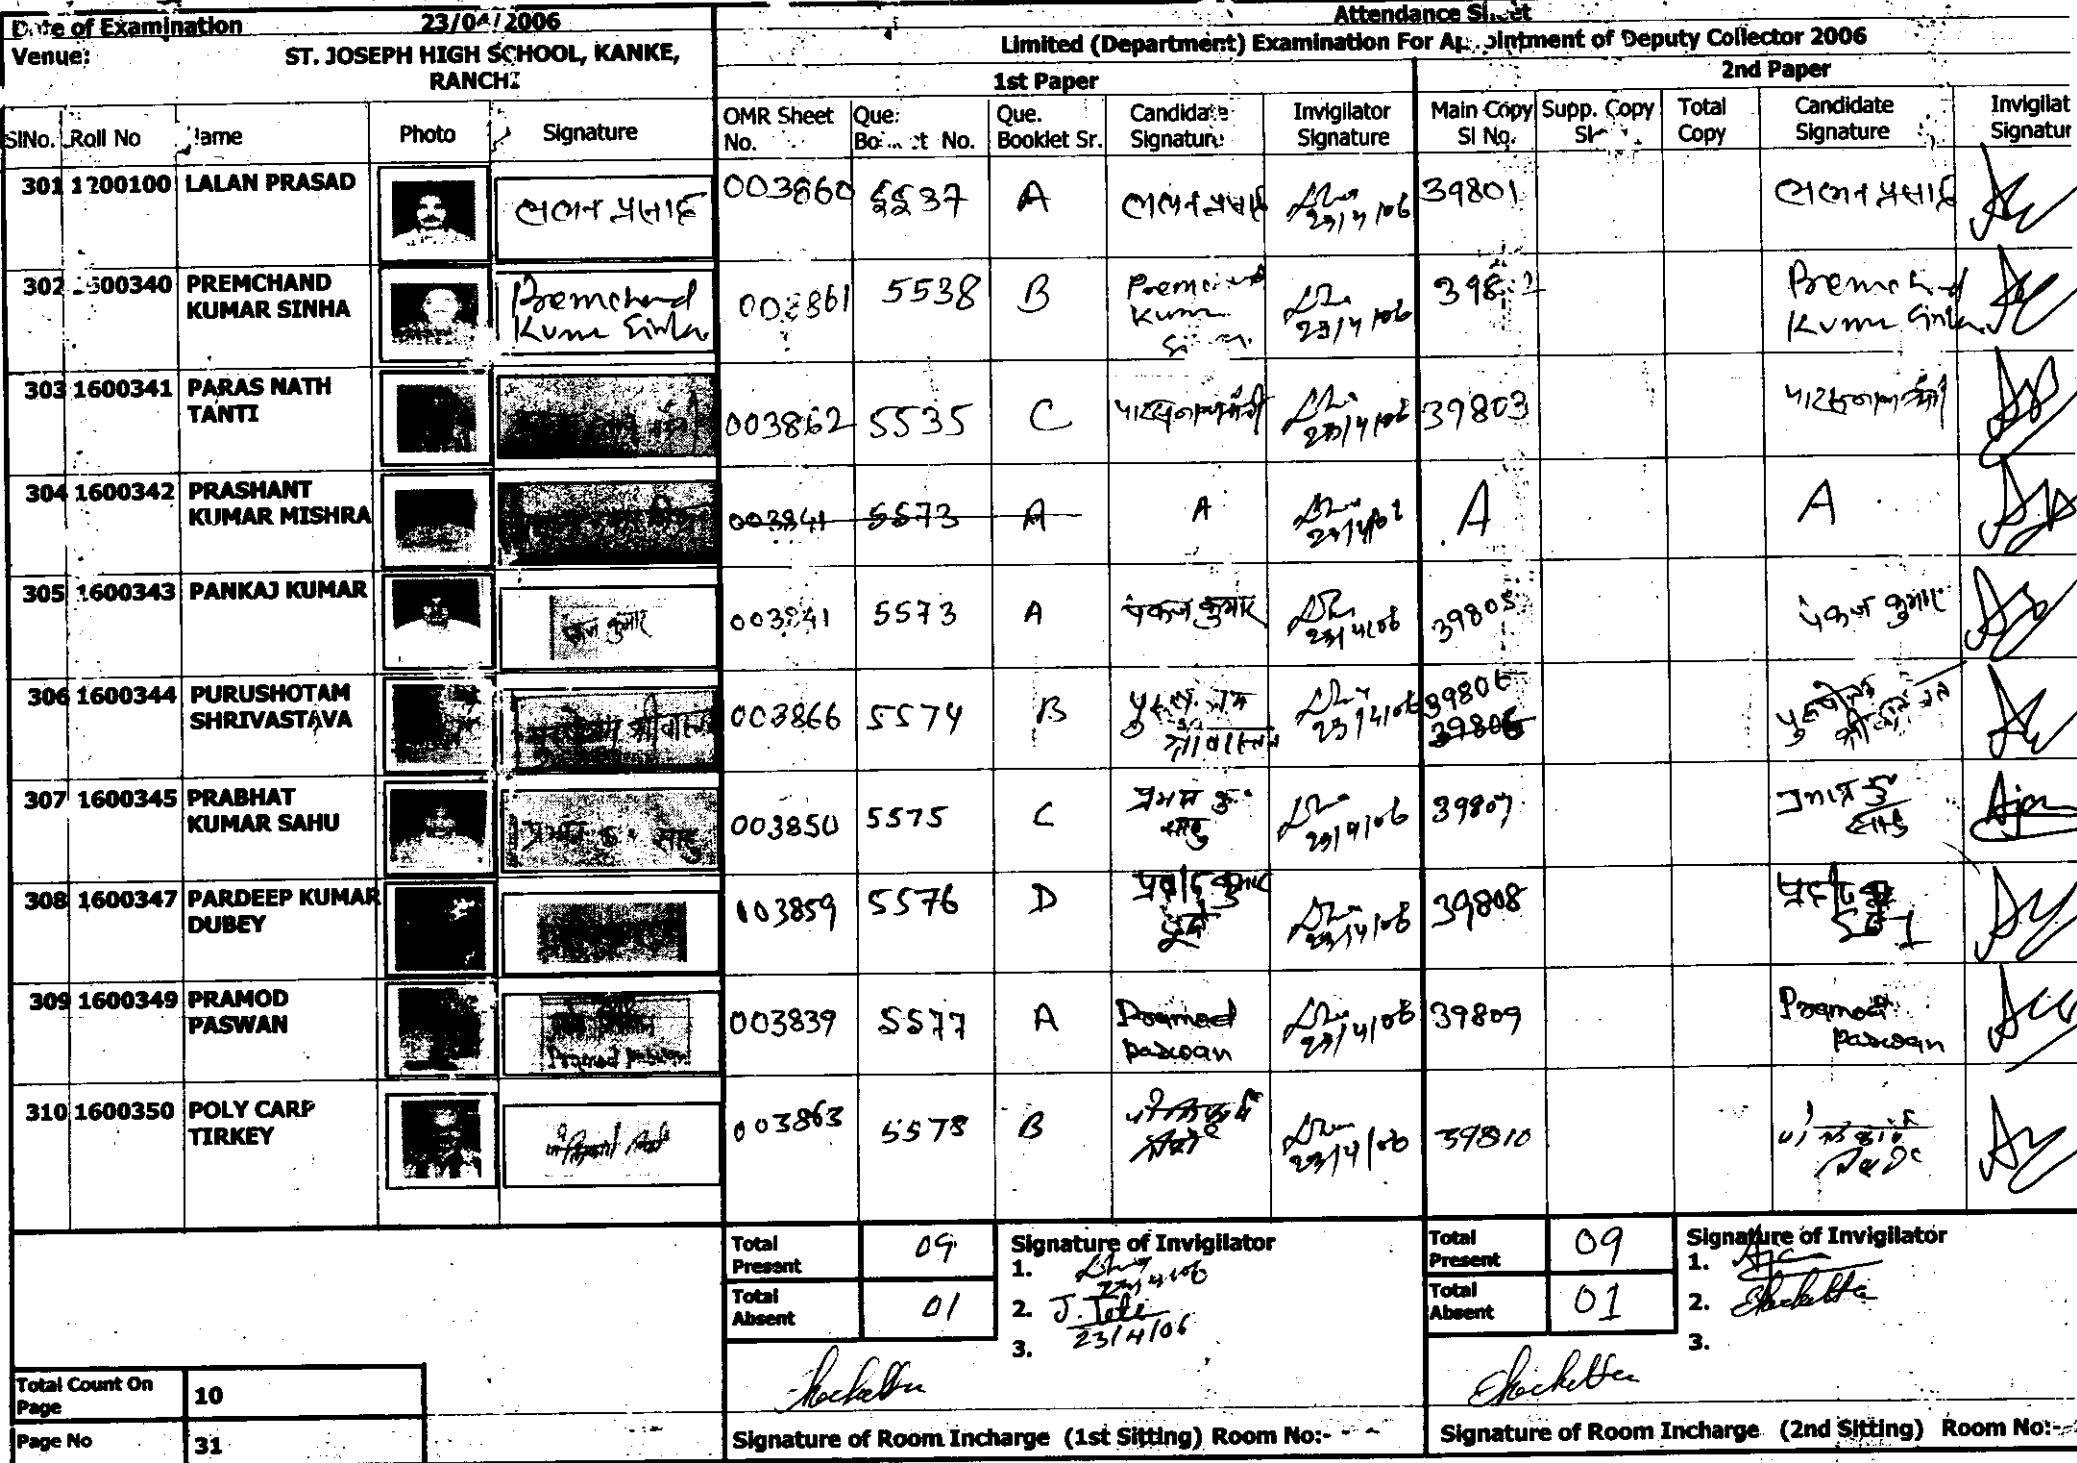 Date of Examination 23/04/2006
Attendance Sheet
Venue: ST. JOSEPH HIGH SCHOOL, KANKE, RANCHI
Limited (Department) Examination For Appointment of Deputy Collector 2006
1st Paper 2nd Paper
SlNo. Roll No Name Photo Signature OMR Sheet No. Que. Booklet No. Que. Booklet Sr. Candidate Signature Invigilator Signature Main Copy Sl No. Supp. Copy Sl Total Copy Candidate Signature Invigilat Signatur
301 1200100 LALAN PRASAD ललन प्रसाद 003860 5537 A ललन प्रसाद 23/4/06 39801 ललन प्रसाद
302 1600340 PREMCHAND KUMAR SINHA Premchand Kumar Sinha 003861 5538 B Premchand Kumar Sinha 23/4/06 39802 Premchand Kumar Sinha
303 1600341 PARAS NATH TANTI 003862 5535 C 23/4/06 39803
304 1600342 PRASHANT KUMAR MISHRA 003841 5573 A A 23/4/06 A A
305 1600343 PANKAJ KUMAR पंकज कुमार 003841 5573 A पंकज कुमार 23/4/06 39805 पंकज कुमार
306 1600344 PURUSHOTAM SHRIVASTAVA 003866 5574 B 23/4/06 39806 39806
307 1600345 PRABHAT KUMAR SAHU प्रभात कु॰ साहु 003850 5575 C प्रभात कु॰ साहु 23/4/06 39807
308 1600347 PARDEEP KUMAR DUBEY 003859 5576 D 23/4/06 39808
309 1600349 PRAMOD PASWAN Pramod Paswan 003839 5577 A Pramod Paswan 23/4/06 39809 Pramod Paswan
310 1600350 POLY CARP TIRKEY 003863 5578 B 23/4/06 39810
Total Present 09 Signature of Invigilator Total Present 09 Signature of Invigilator
1. 23/4/06 1.
Total Absent 01 2. J. Tete 23/4/06 Total Absent 01 2.
3. 3.
Total Count On Page 10
Page No 31
Signature of Room Incharge (1st Sitting) Room No:- Signature of Room Incharge (2nd Sitting) Room No:-